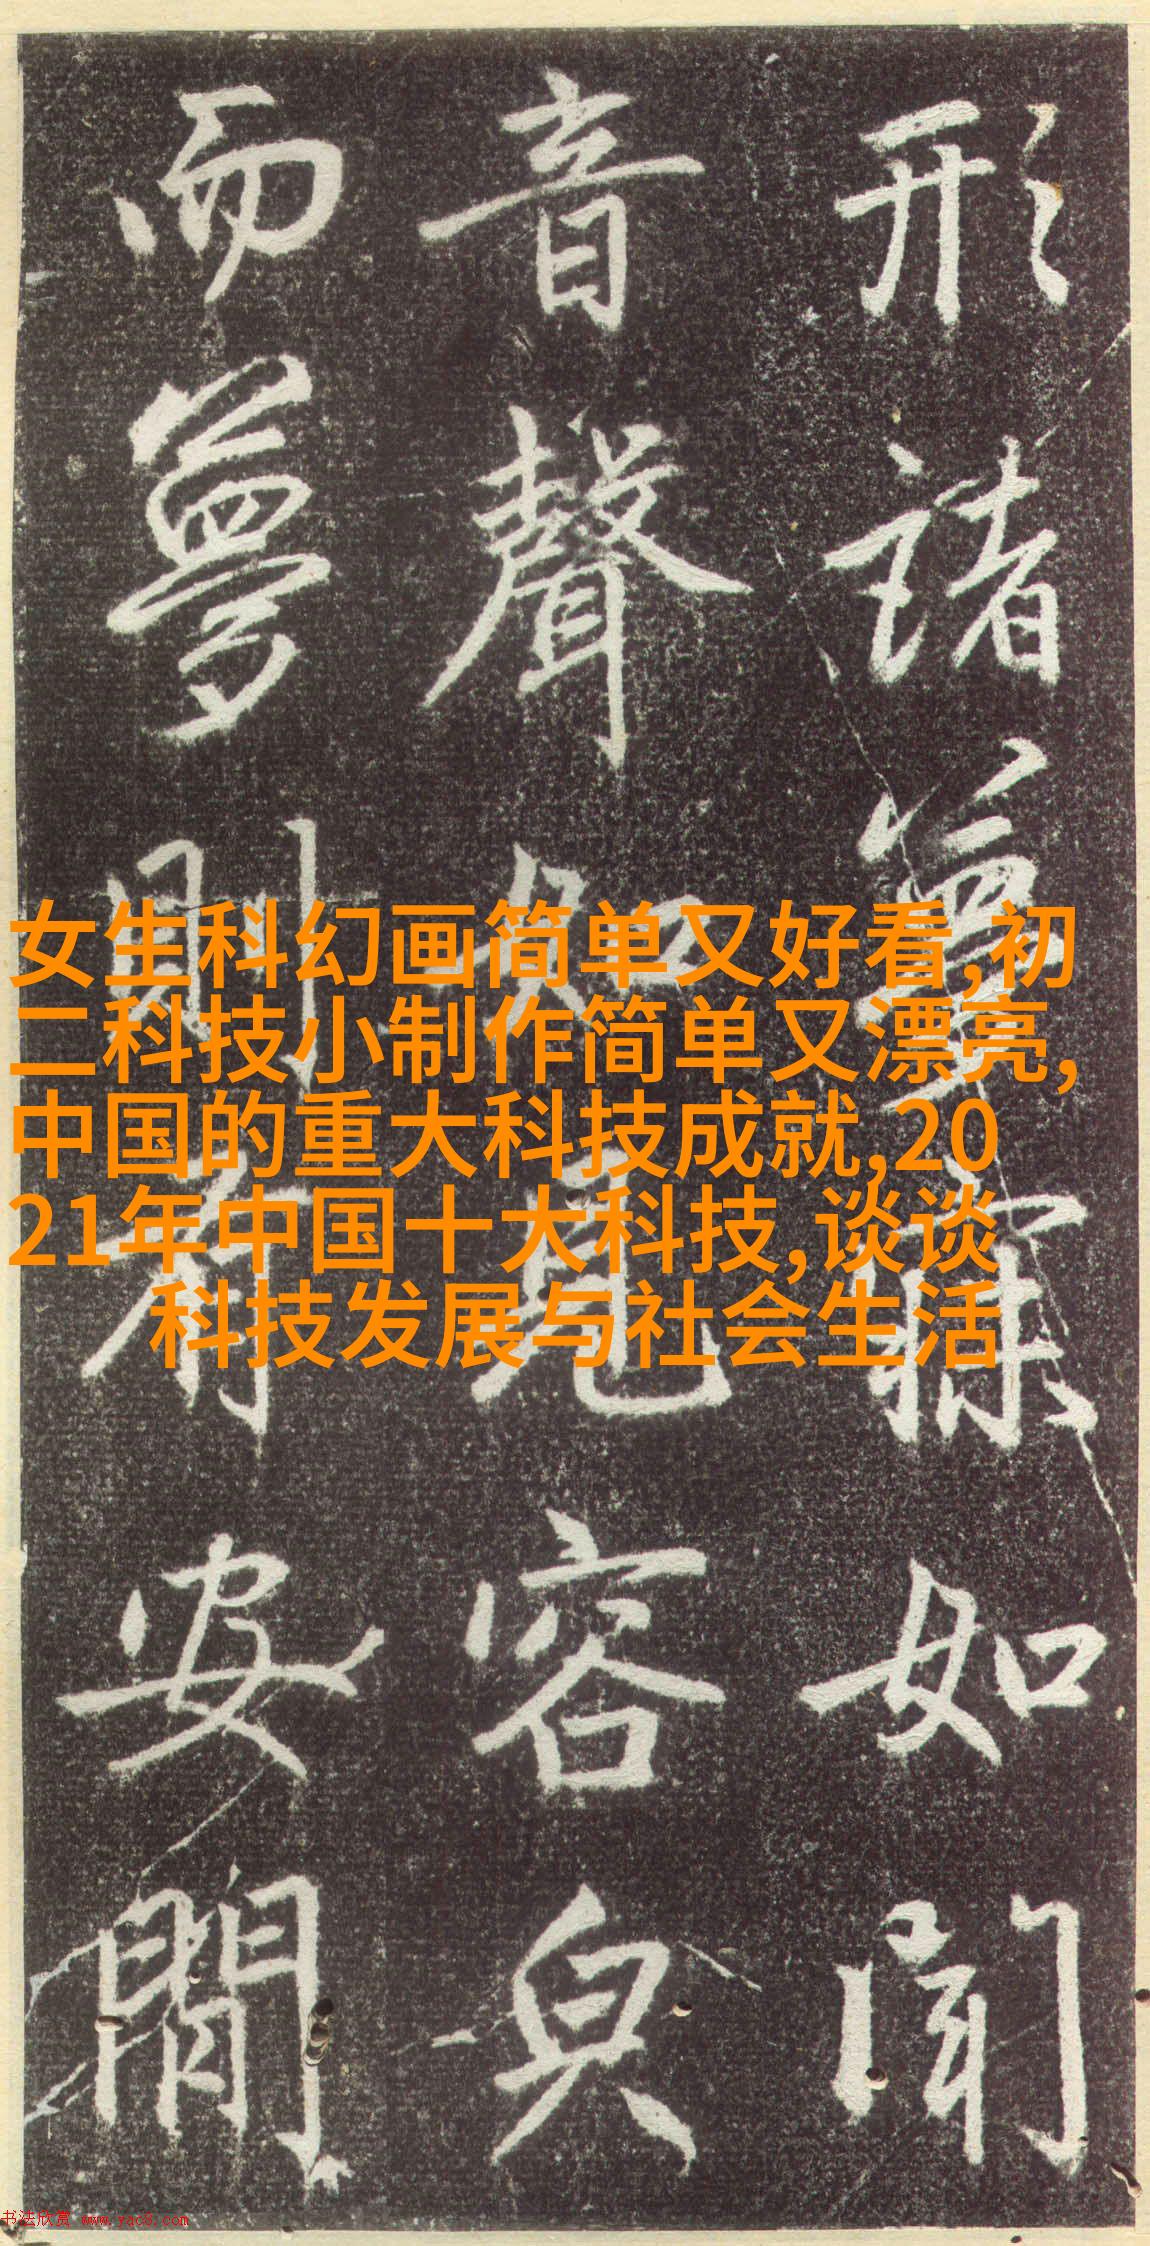 形諸夢寐如聞
音聲如見容皃
而夢則有安閒
女生科幻画简单又好看,初
二科技小制作简单又漂亮,
中国的重大科技成就,20
21年中国十大科技,谈谈
科技发展与社会生活
书法欣赏 www.yac8.com